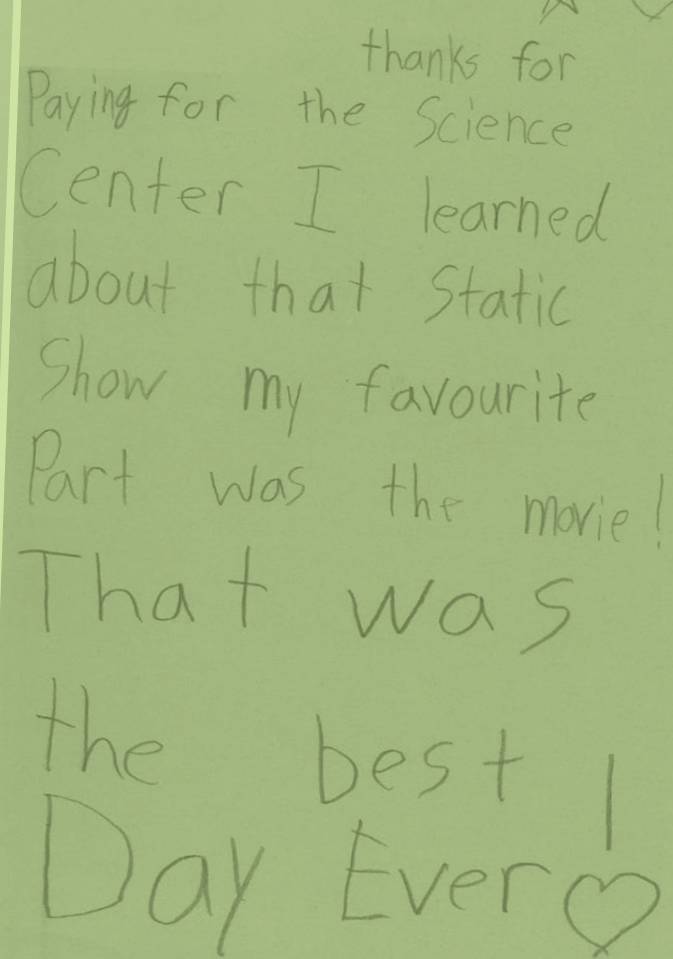 thanks for
Paying for the Science
Center I learned
about that Static
Show my favourite
Part was the movie!
That was
the best
Day Ever!